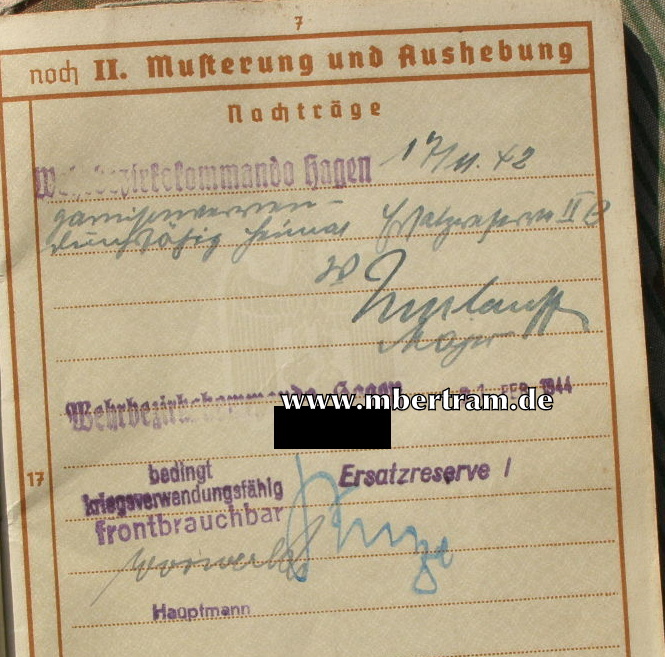 7
noch II. Musterung und Aushebung
Nachträge
Wehrbezirkskommando Hagen 17/11.42
garnisonverwen-
dungsfähig Heimat Ersatzreserve II B
Major
Wehrbezirkskommando Hagen 1944
www.mbertram.de
17
bedingt
kriegsverwendungsfähig Ersatzreserve I
frontbrauchbar
Hauptmann